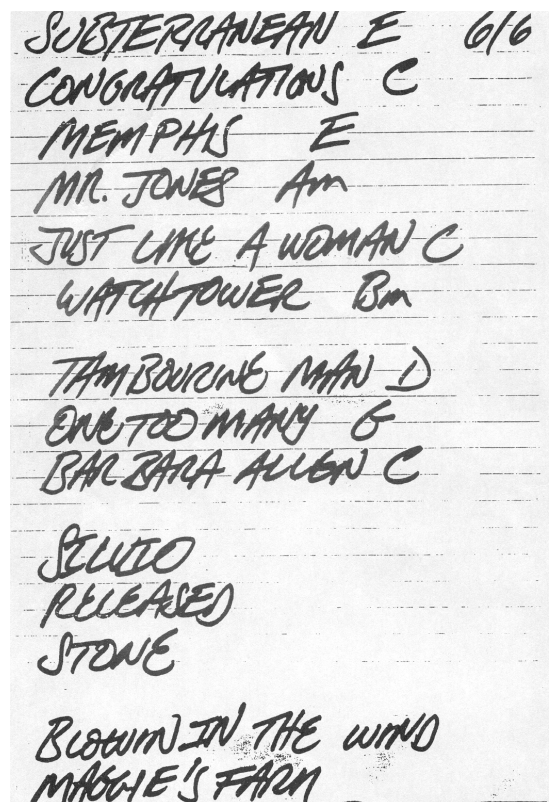 SUBTERRANEAN E 6/6
CONGRATULATIONS C
MEMPHIS E
MR. JONES Am
JUST LIKE A WOMAN C
WATCHTOWER Bm
TAMBOURINE MAN D
ONE TOO MANY G
BARBARA ALLEN C
SILVIO
RELEASED
STONE
BLOWIN IN' THE WIND
MAGGIE'S FARM